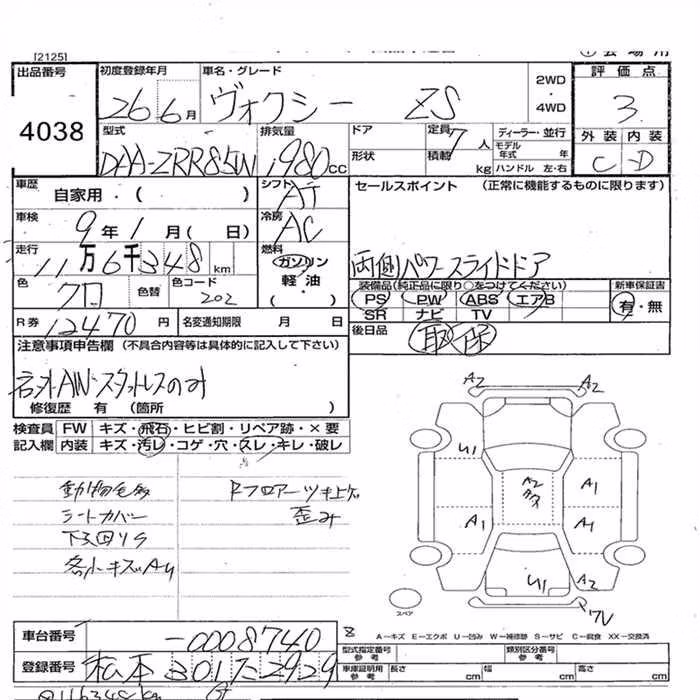 [2125]
出品番号
4038
初度登録年月
26 6月
車名・グレード
ヴォクシー ZS
2WD
・
4WD
評価点
3
外装 内装
C D
型式
DAA-ZRR85W
排気量
1980CC
ドア
形状
定員 7人
積載 kg
ディーラー・並行
モデル年式 年
ハンドル 左・右
車歴
自家用・( )
シフト
AT
セールスポイント (正常に機能するものに限ります)
両側パワースライドドア
車検
9年1月( 日)
冷房
AC
走行
11万6千348km
燃料
ガソリン
軽油
・
( )
色
クロ
色替
色コード
202
装備品(純正品に限り○をつけてください)
PS PW ABS エアB
SR ナビ TV
新車保証書
有・無
R券 12470円
名変通知期限 月 日
後日品
取 保
注意事項申告欄 (不具合内容等は具体的に記入して下さい)
社外AW・スタットレスのみ
修復歴 有 (箇所 )
検査員 FW キズ・飛石・ヒビ割・リペア跡・×要
記入欄 内装 キズ・汚レ・コゲ・穴・スレ・キレ・破レ
動物毛多
シートカバー
下回りサ
各小キズAU
Rフロアーツキ上ゲ
歪み
A2 A2
U1
A2
A1
A1
A1
U1
A2
スペア
A−キズ E−エクボ U−凹み W−補修跡 S−サビ C−腐食 XX−交換済
車台番号
-0008740
8
登録番号
松本 301 た 2929
型式指定番号
参考
類別区分番号
参考
車庫証明用
参考
長さ cm
幅 cm
高さ cm